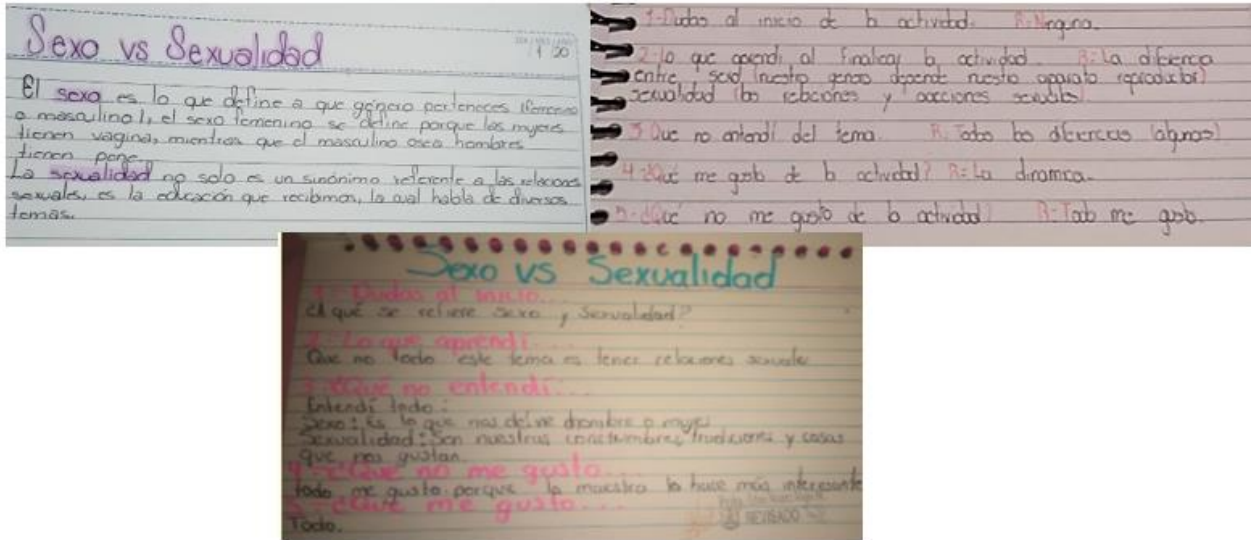 Sexo vs Sexualidad
El sexo es lo que define a que género perteneces (femenino
o masculino), el sexo femenino se define porque las mujeres
tienen vagina, mientras que el masculino osea hombres
tienen pene.
La sexualidad no solo es un sinónimo referente a las relaciones
sexuales, es la educación que recibimos, la cual habla de diversos
temas.
1-Dudas al inicio de la actividad. R: Ninguna.
2-Lo que aprendi al finalizar la actividad. R: La diferencia
entre, sexo (nuestro genero depende nuestro aparato reproductor)
sexualidad (las relaciones y acciones sexuales)
3-Que no entendí del tema. R: Todas las diferencias (algunas)
4-¿Qué me gusto de la actividad? R: La dinamica.
5-¿Qué no me gusto de la actividad? R: Todo me gusto.
Sexo vs Sexualidad
1- Dudas al inicio...
¿A qué se refiere sexo y sexualidad?
2- Lo que aprendí...
Que no todo este tema es tener relaciones sexuales
3-¿Qué no entendí...
Entendí todo:
Sexo: Es lo que nos define hombre o mujer
Sexualidad: Son nuestras y cosas
que nos gustan.
4-¿Qué no me gusto...
todo me gusto porque la maestra lo hace más interesante
5-¿Qué me gusto...
Todo.
REVISADO